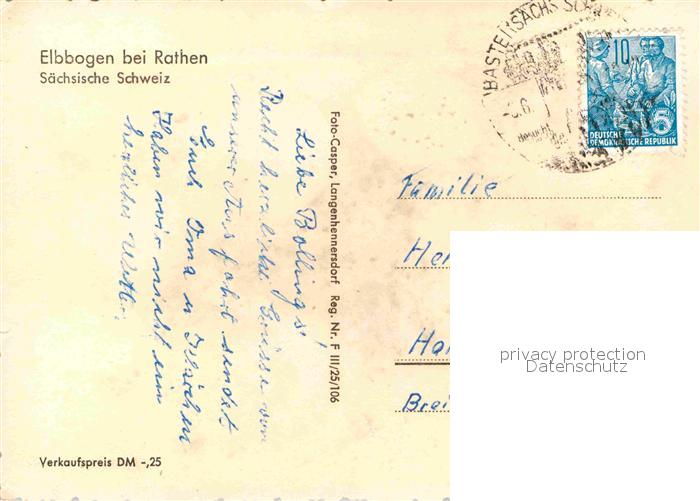 Elbbogen bei Rathen
Sächsische Schweiz
BASTEI SÄCHS SCHWEIZ
10
DEUTSCHE
DEMOKRATISCHE REPUBLIK
Liebe Bollings!
Recht herzliche Grüsse von
unserer Ausfahrt sendet
Euch Oma u
Haben wir nicht ein
herrliches Wetter.
Foto-Casper, Langenhennersdorf Reg. Nr. F III/25/106
Familie
Hei
Ha
Brei
privacy protection
Datenschutz
Verkaufspreis DM -,25